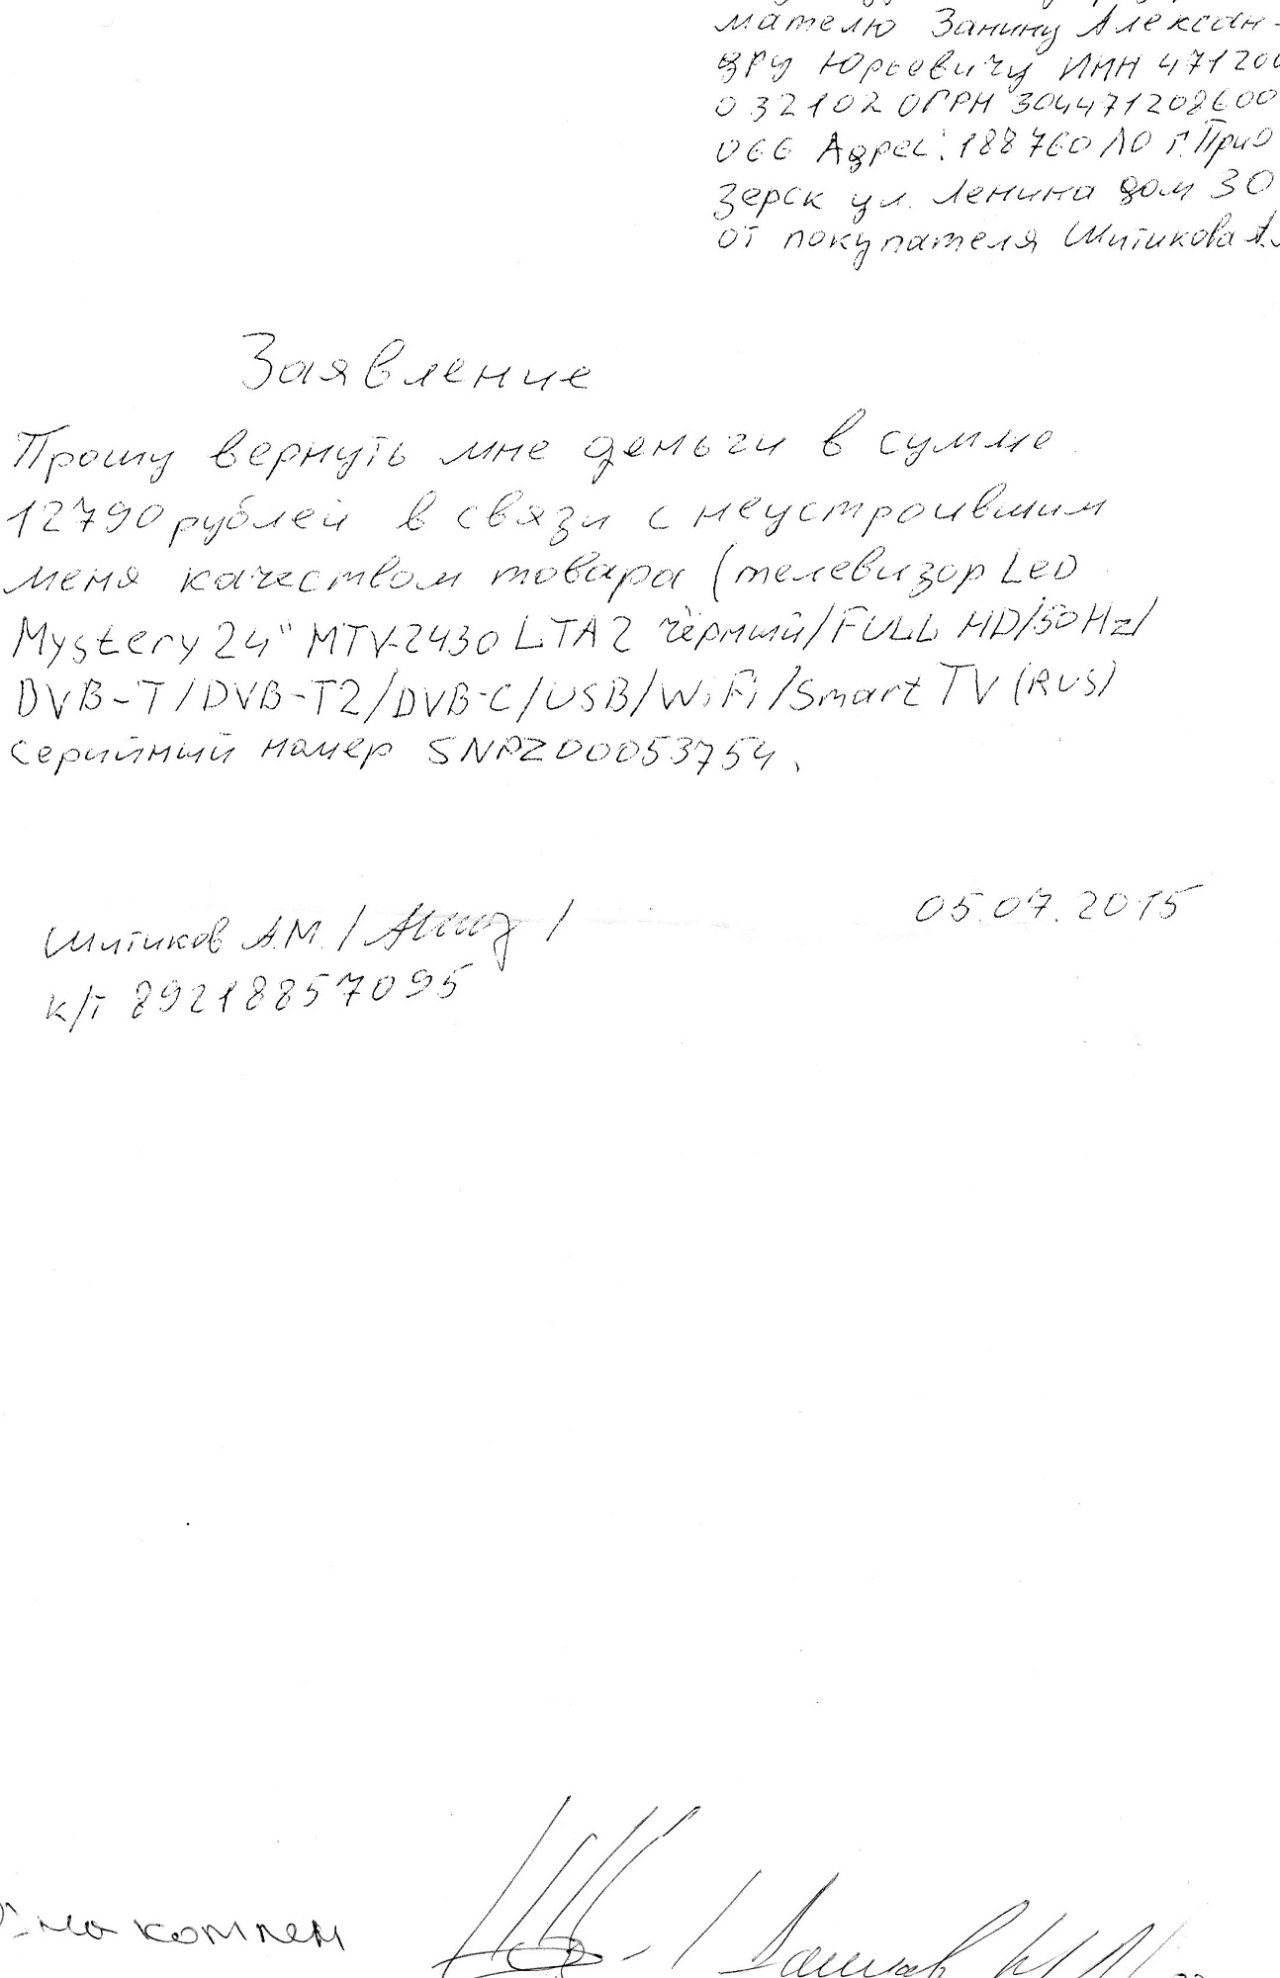 мателю Занину Алексан-
дру Юрьевичу ИНН 471200
032102 ОГРН 304471208600
066 Адрес: 188760 ЛО г. Прио
зерск ул. Ленина дом 30
от покупателя Шитикова А.
Заявление
Прошу вернуть мне деньги в сумме
12790 рублей в связи с неустроившим
меня качеством товара (телевизор LeD
Mystery 24" MTV-2430 LTA2 чёрный/FULL HD/50Hz/
DVB-T/DVB-T2/DVB-C/USB/WiFi/Smart TV (RUS)
серийный номер SNPZ00053754.
Шитиков А.М. / /
05.07.2015
к/т 89218857095
Ознакомлен